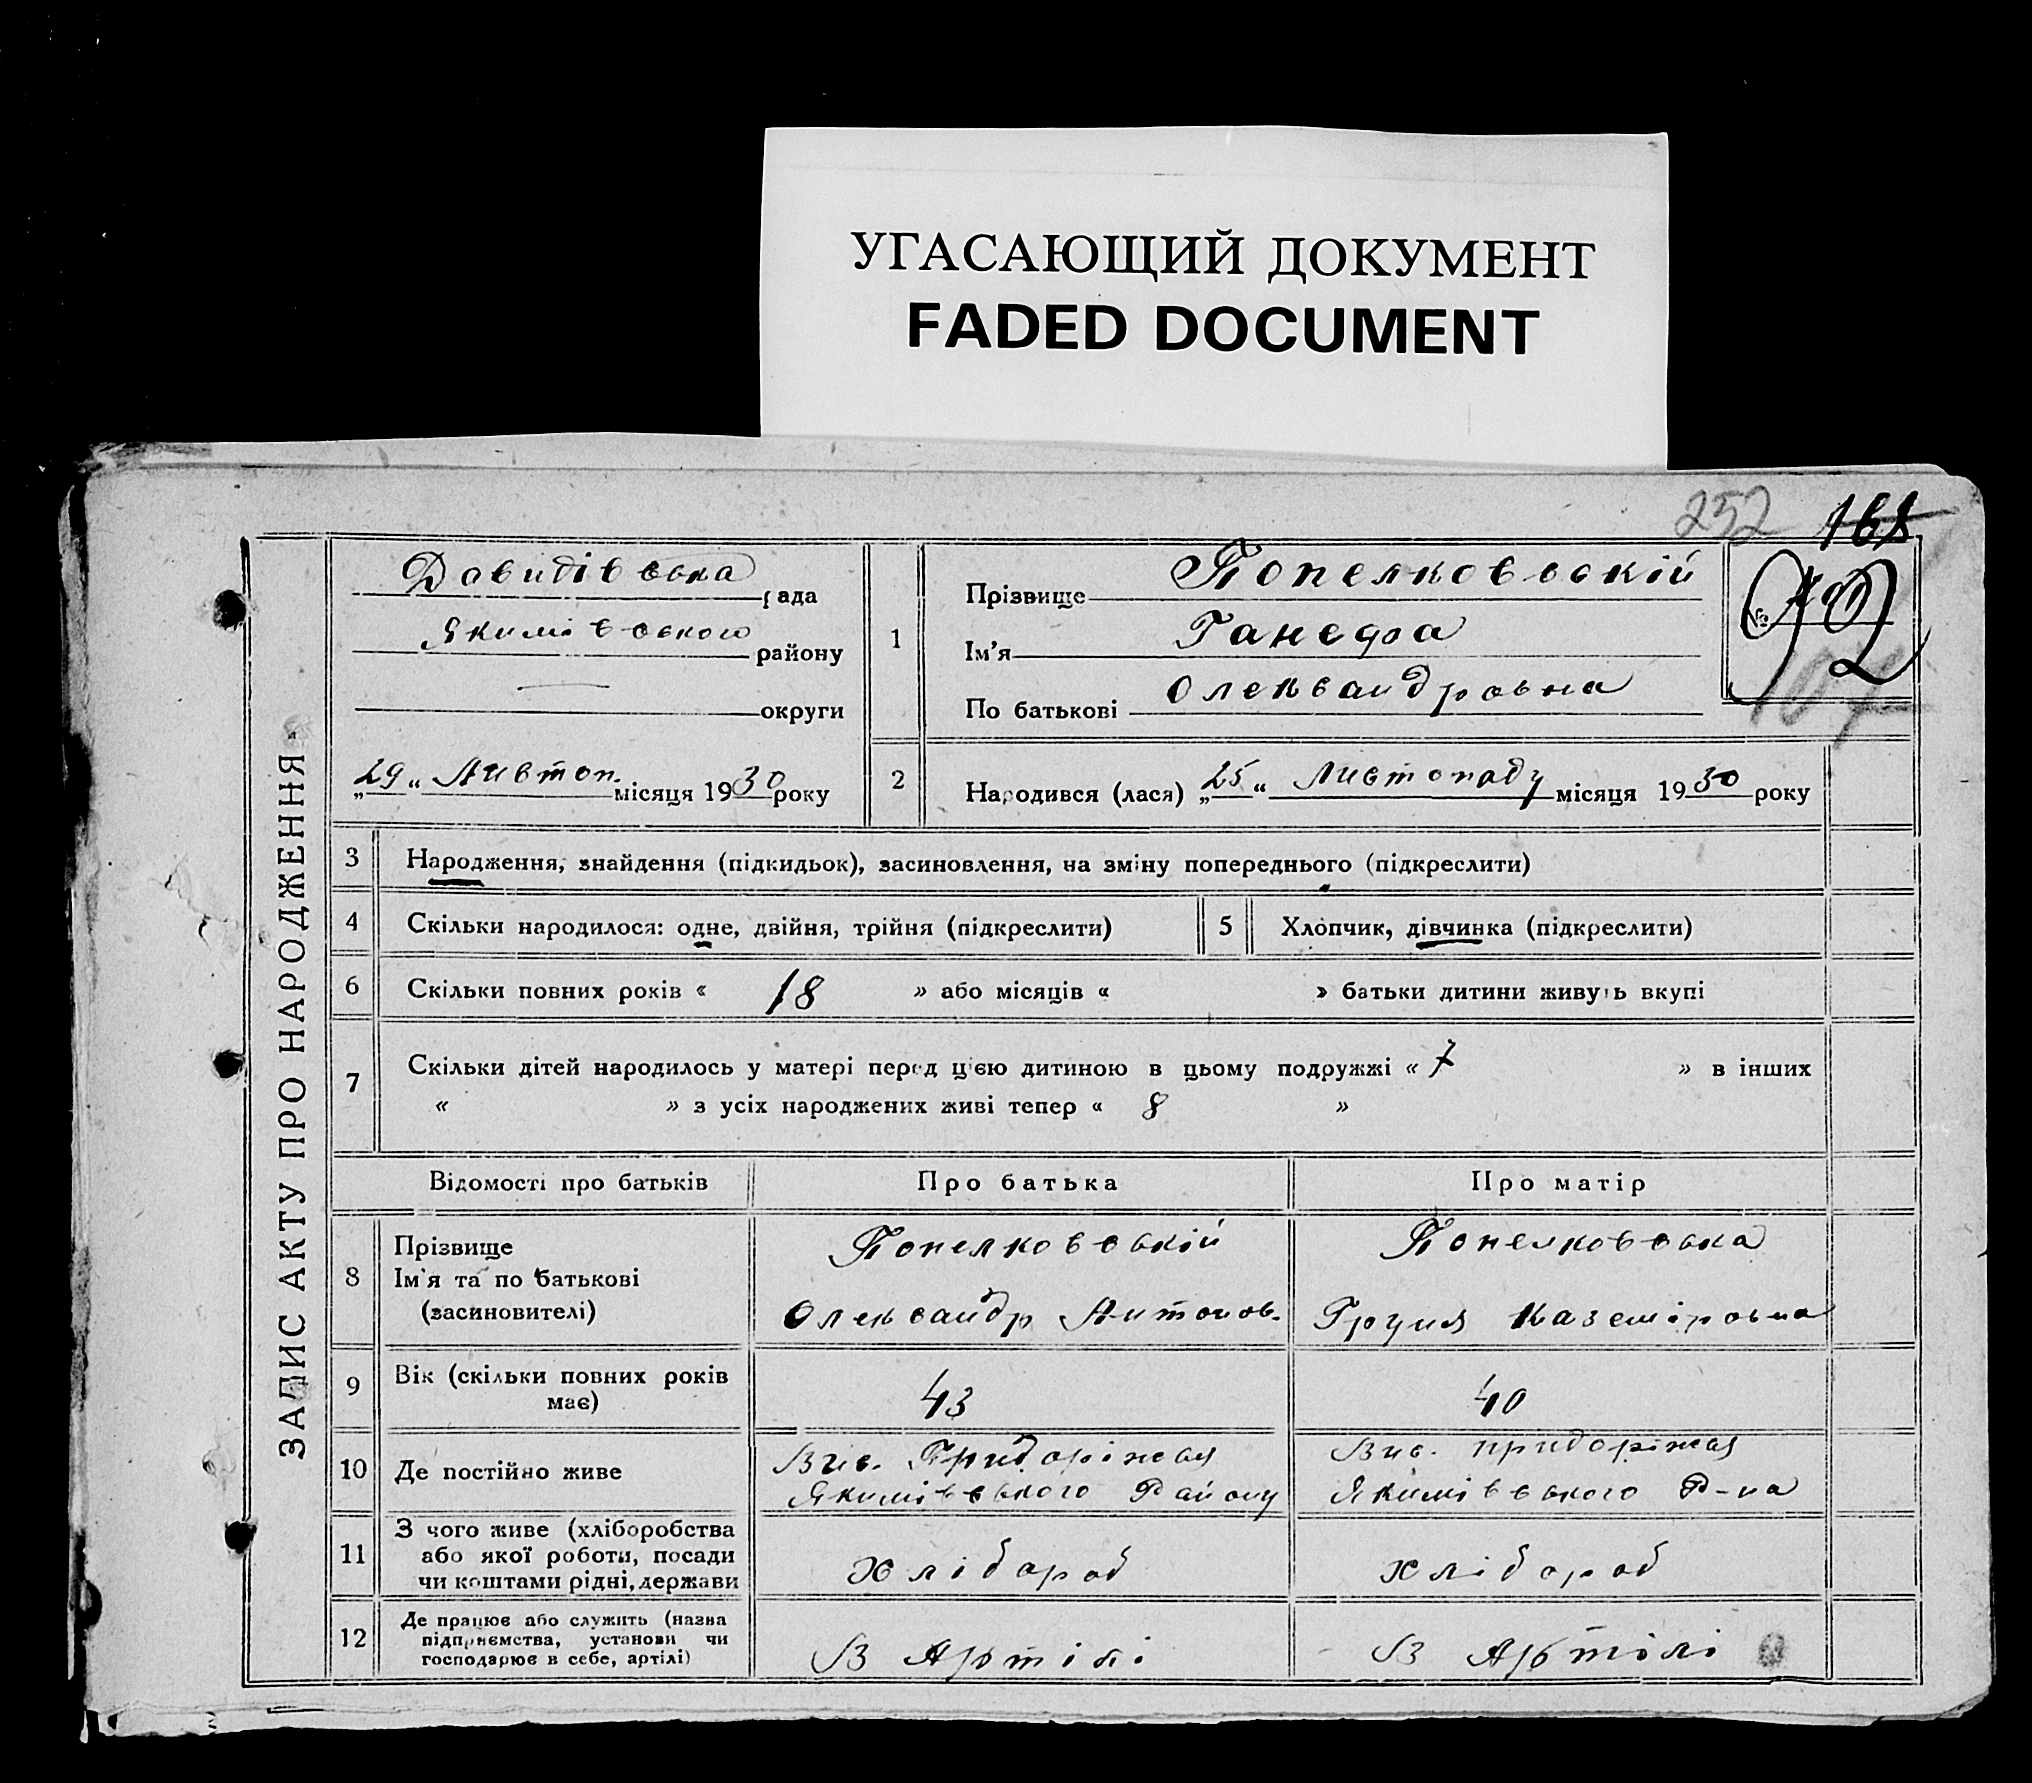 УГАСАЮЩИЙ ДОКУМЕНТ
FADED DOCUMENT
252 168
ЗАПИС АКТУ ПРО НАРОДЖЕННЯ.
Давидівська рада
Якимівського району
— округи
„29“ Листоп. місяця 1930 року
1
Прізвище Попелковській
Ім'я Ганефа
По батькові Олександровна
№
92
107
2
Народився (лася) „25“ Листопаду місяця 1930 року
3 Народження, знайдення (підкидьок), засиновлення, на зміну попереднього (підкреслити)
4 Скільки народилося: одне, двійня, трійня (підкреслити) 5 Хлопчик, дівчинка (підкреслити)
6 Скільки повних років « 18 » або місяців « » батьки дитини живуть вкупі
7 Скільки дітей народилось у матері перед цією дитиною в цьому подружжі « 7 » в інших
« » з усіх народжених живі тепер « 8 »
Відомості про батьків Про батька Про матір
8 Прізвище Попелковській Попелковська
Ім'я та по батькові
(засиновителі) Олександр Антонов. Груня Каземіровна
9 Вік (скільки повних років має) 43 40
10 Де постійно живе Вис. Придоріжня Вис. придоріжня
Якимівського Району Якимівського Р-на
11 З чого живе (хліборобства
або якої роботи, посади
чи коштами рідні, держави хлібороб хлібороб
12 Де працює або служить (назва
підприємства, установи чи
господарює в себе, артілі) В Артілі В Артілі